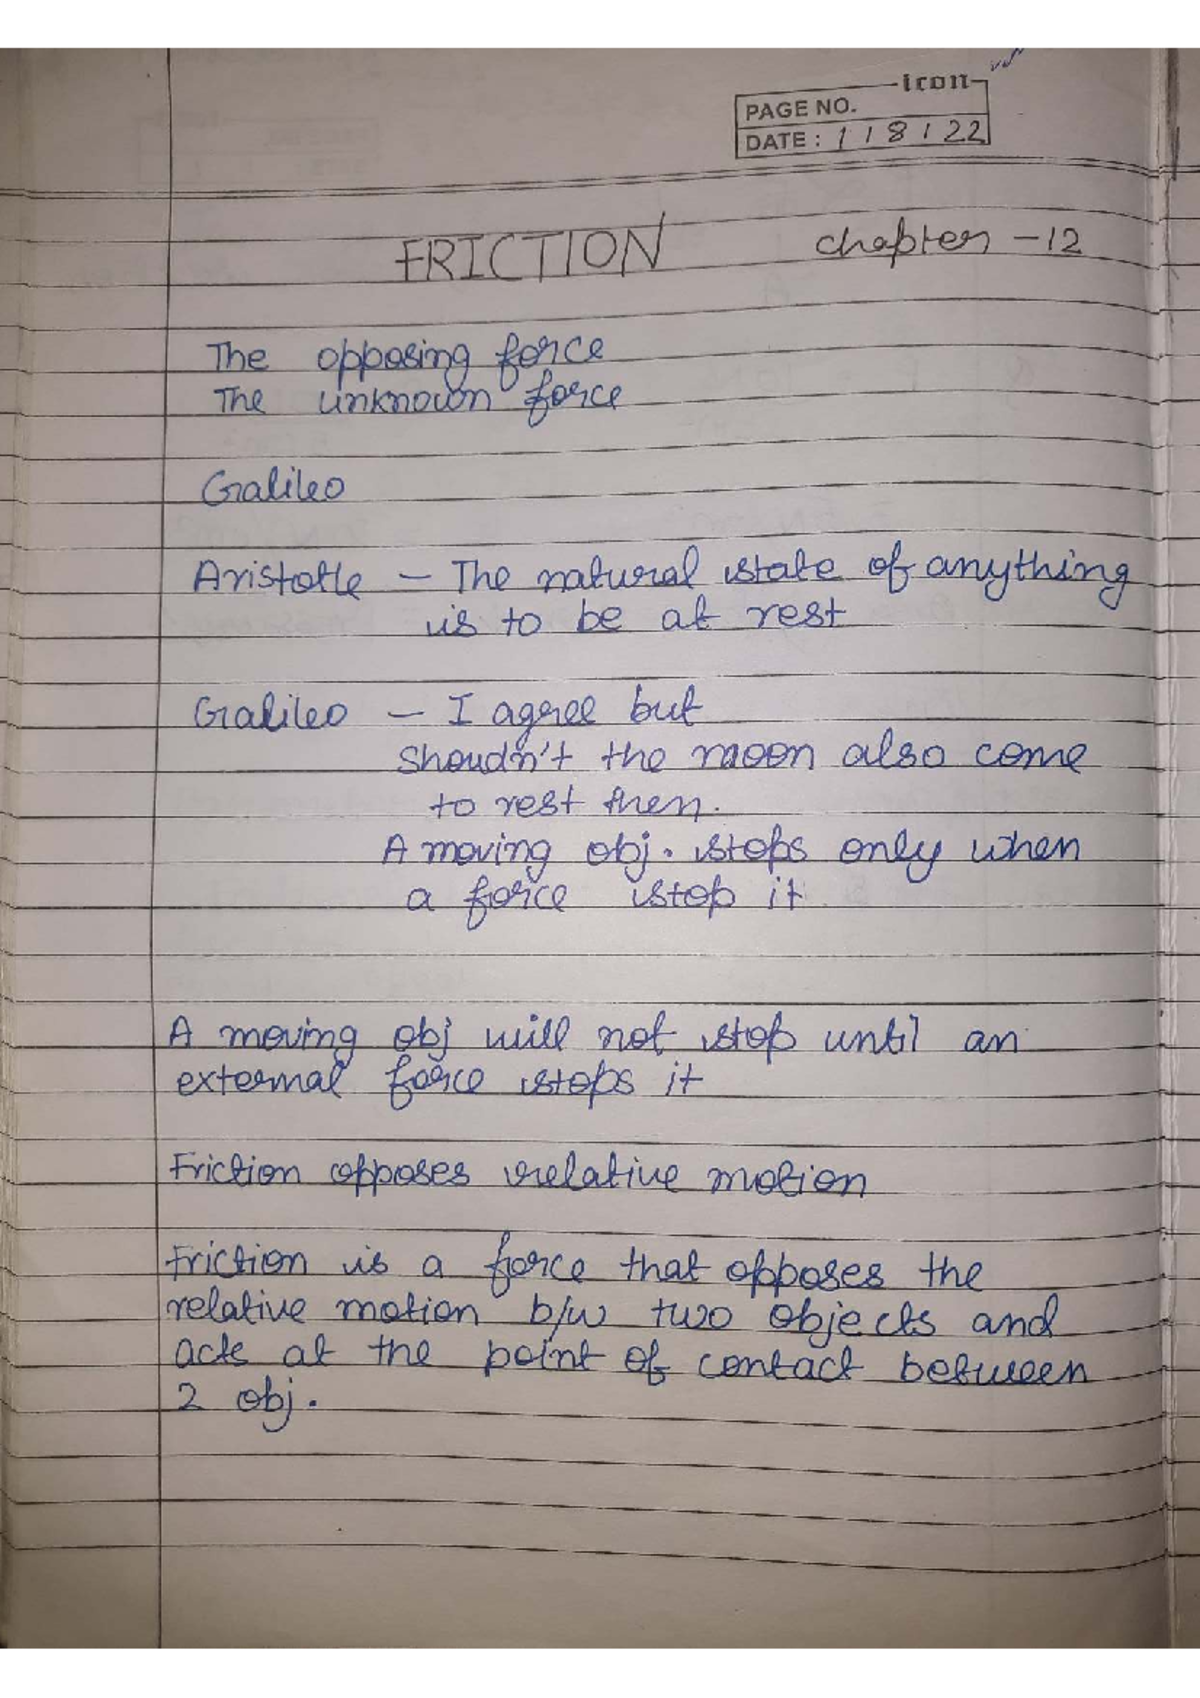 icon
PAGE NO.
DATE: 1/8/22
FRICTION chapter -12
The opposing force
The unknown force
Galileo
Aristotle - The natural state of anything
is to be at rest
Galileo - I agree but
Shoudn't the moon also come
to rest then.
A moving obj. stops only when
a force stop it
A moving obj will not stop until an
external force stops it
Friction opposes relative motion
Friction is a force that opposes the
relative motion b/w two objects and
acts at the point of contact between
2 obj.